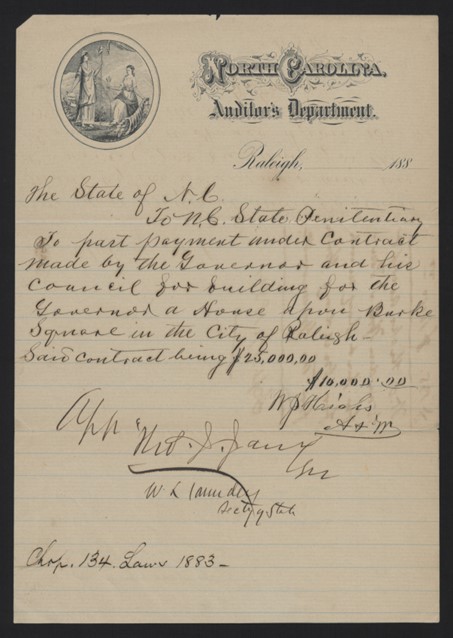 North Carolina,
Auditor's Department.
Raleigh, 188
The State of N.C.
To N.C. State Penitentiary
To part payment under Contract
made by the Governor and his
Council for building for the
Governor a House upon Burke
Square in the City of Raleigh—
Said contract being $25,000.00
$10,000.00
App
Tho. J. Jarvis
Gov
W. L. Saunders
Secty of State
Chap. 134. Laws 1883—